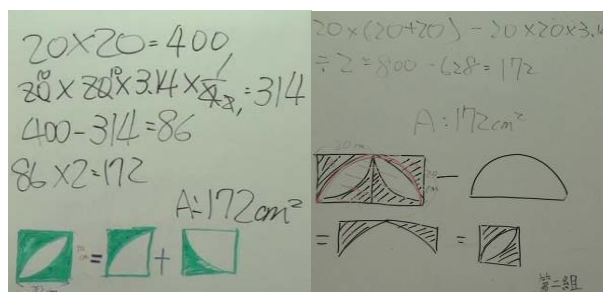 20×20=400
20×20×3.14×1/4=314
400-314=86
86×2=172
A:172cm²
20×(20+20)-20×20×3.1
÷2=800-628=172
A:172cm²
20
cm
=
+
-
=
=
第二組